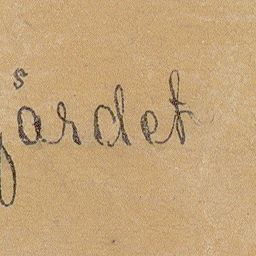 gårdet